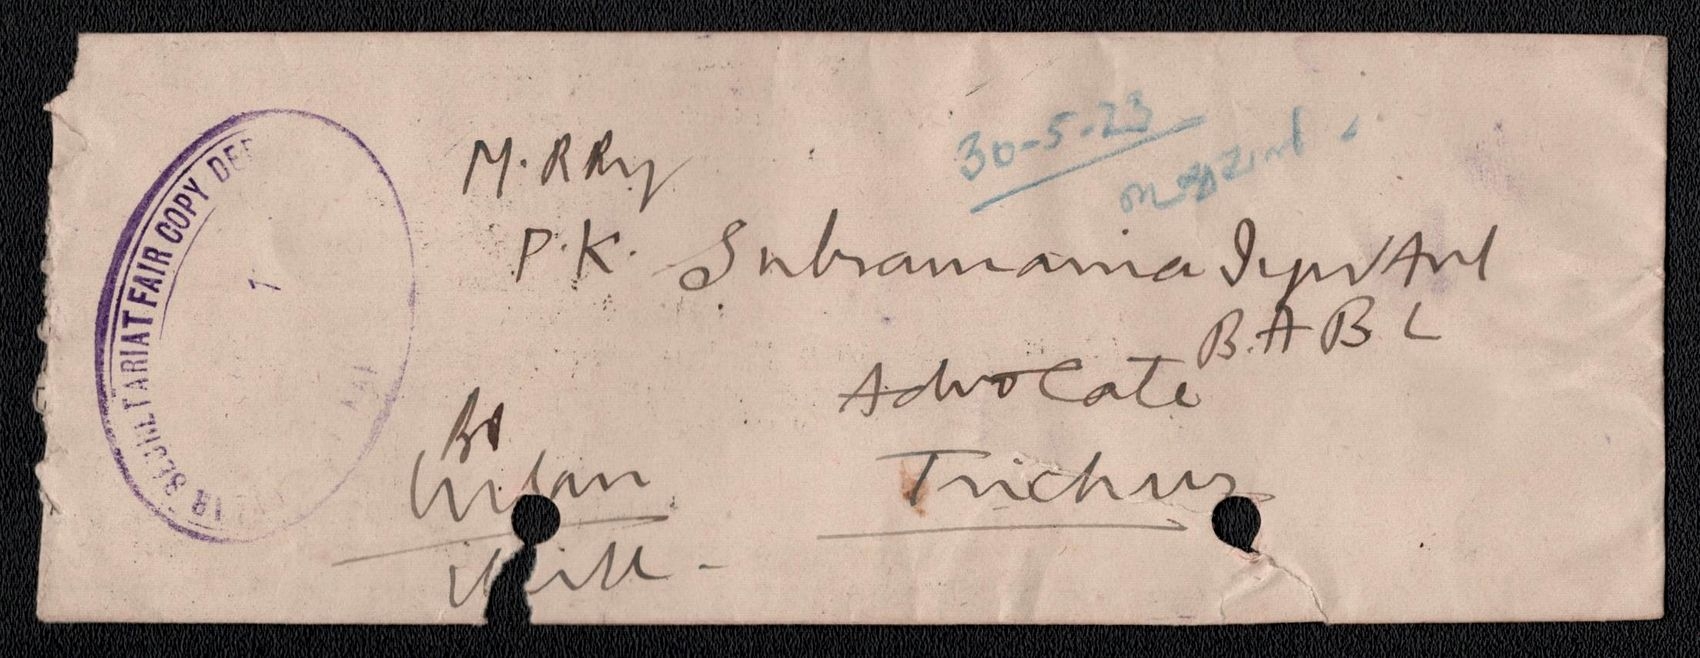 SECRETARIAT FAIR COPY DEP
30-5-23
M.RRy
P.K. Subramania Iyer Avl
B.A B L
Advocate
Trichur